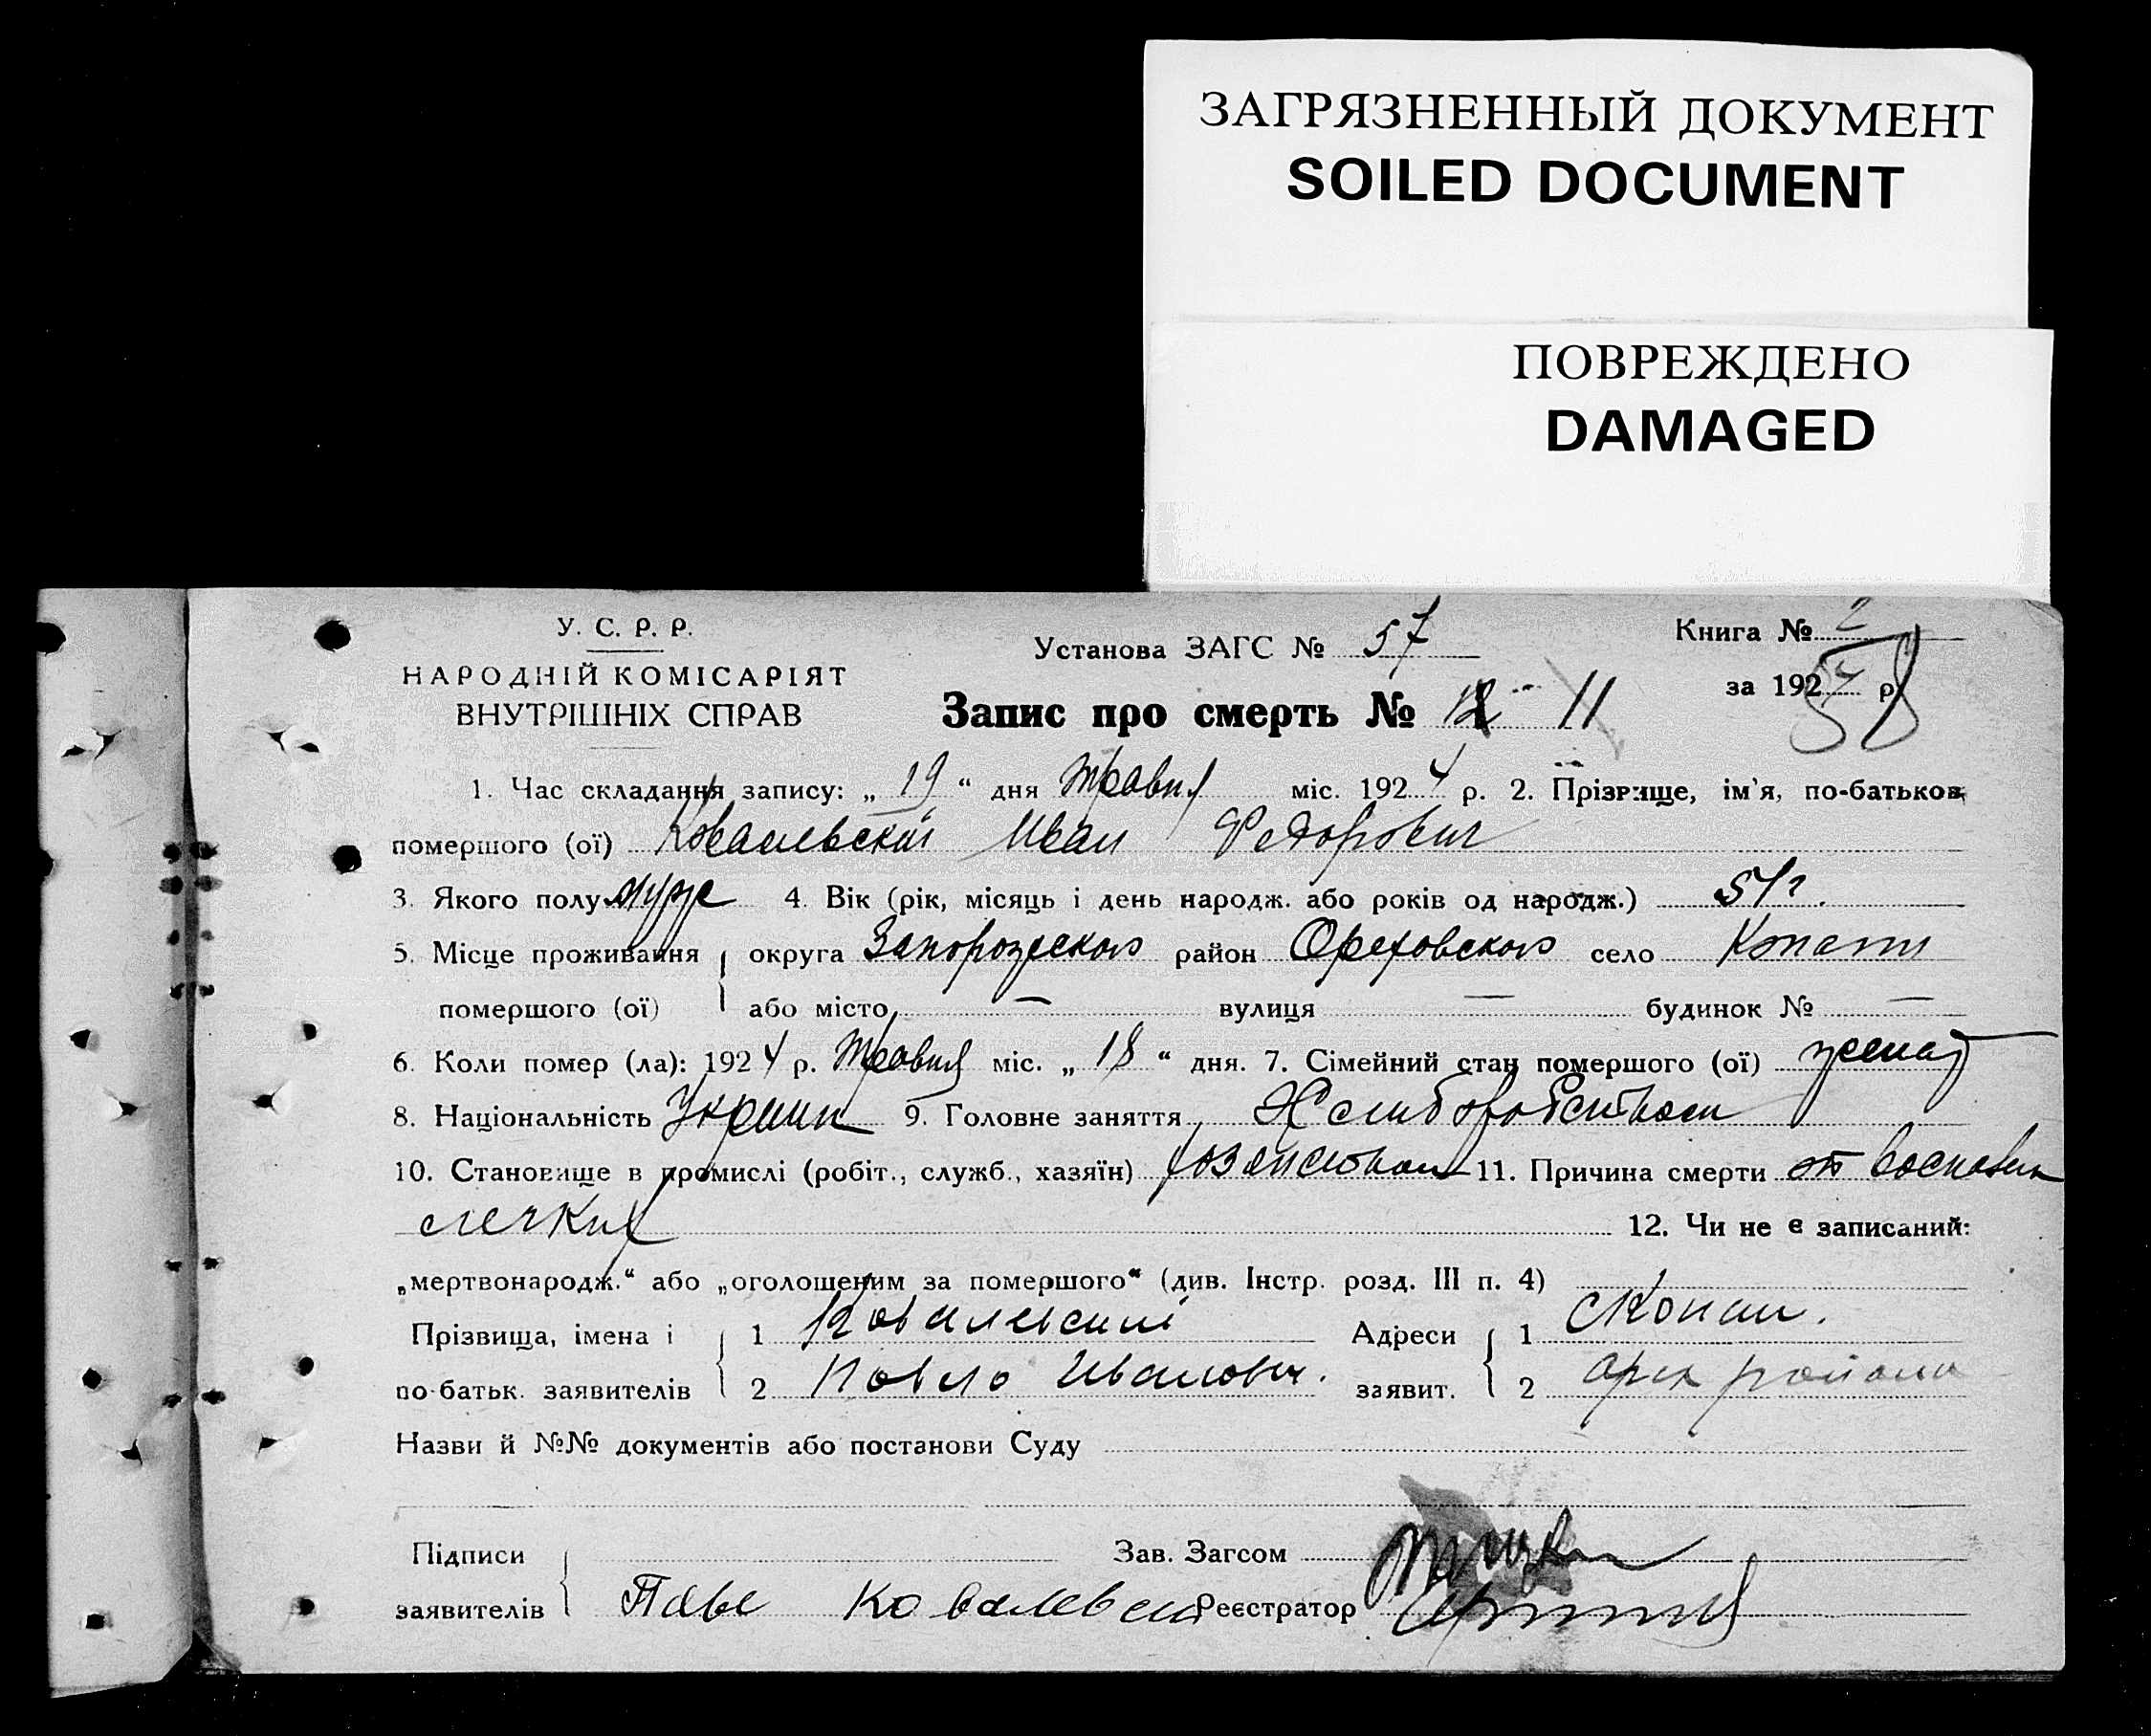 ЗАГРЯЗНЕННЫЙ ДОКУМЕНТ
SOILED DOCUMENT
ПОВРЕЖДЕНО
DAMAGED
У. С. Р. Р.
НАРОДНІЙ КОМІСАРІЯТ
ВНУТРІШНІХ СПРАВ
Установа ЗАГС № 57
Запис про смерть № 11
Книга № 2
за 1924 р.
58
1. Час складання запису: „ 19 “ дня травня міс. 1924 р. 2. Прізвище, ім'я, по-батьков
помершого (ої) Ковалевский Иван Федорович
3. Якого полу муж 4. Вік (рік, місяць і день народж. або років од народж.) 51 г.
5. Місце проживання округа Запорожского район Ореховского село Копани
помершого (ої) або місто — вулиця — будинок № —
6. Коли помер (ла): 1924 р. травня міс. „ 18 “ дня. 7. Сімейний стан помершого (ої) женат
8. Національність Украин 9. Головне заняття Хлеборобством
10. Становище в промислі (робіт., служб., хазяїн) 11. Причина смерти от воспален
легких 12. Чи не є записаний:
„мертвонародж.“ або „оголошеним за помершого“ (див. Інстр. розд. III п. 4)
Прізвища, імена і 1 Ковалевский Адреси 1 с Копани.
по-батьк. заявителів 2 Павло Иванович. заявит. 2 Орех района
Назви й №№ документів або постанови Суду
Підписи Зав. Загсом
заявителів Ковалевски Реєстратор